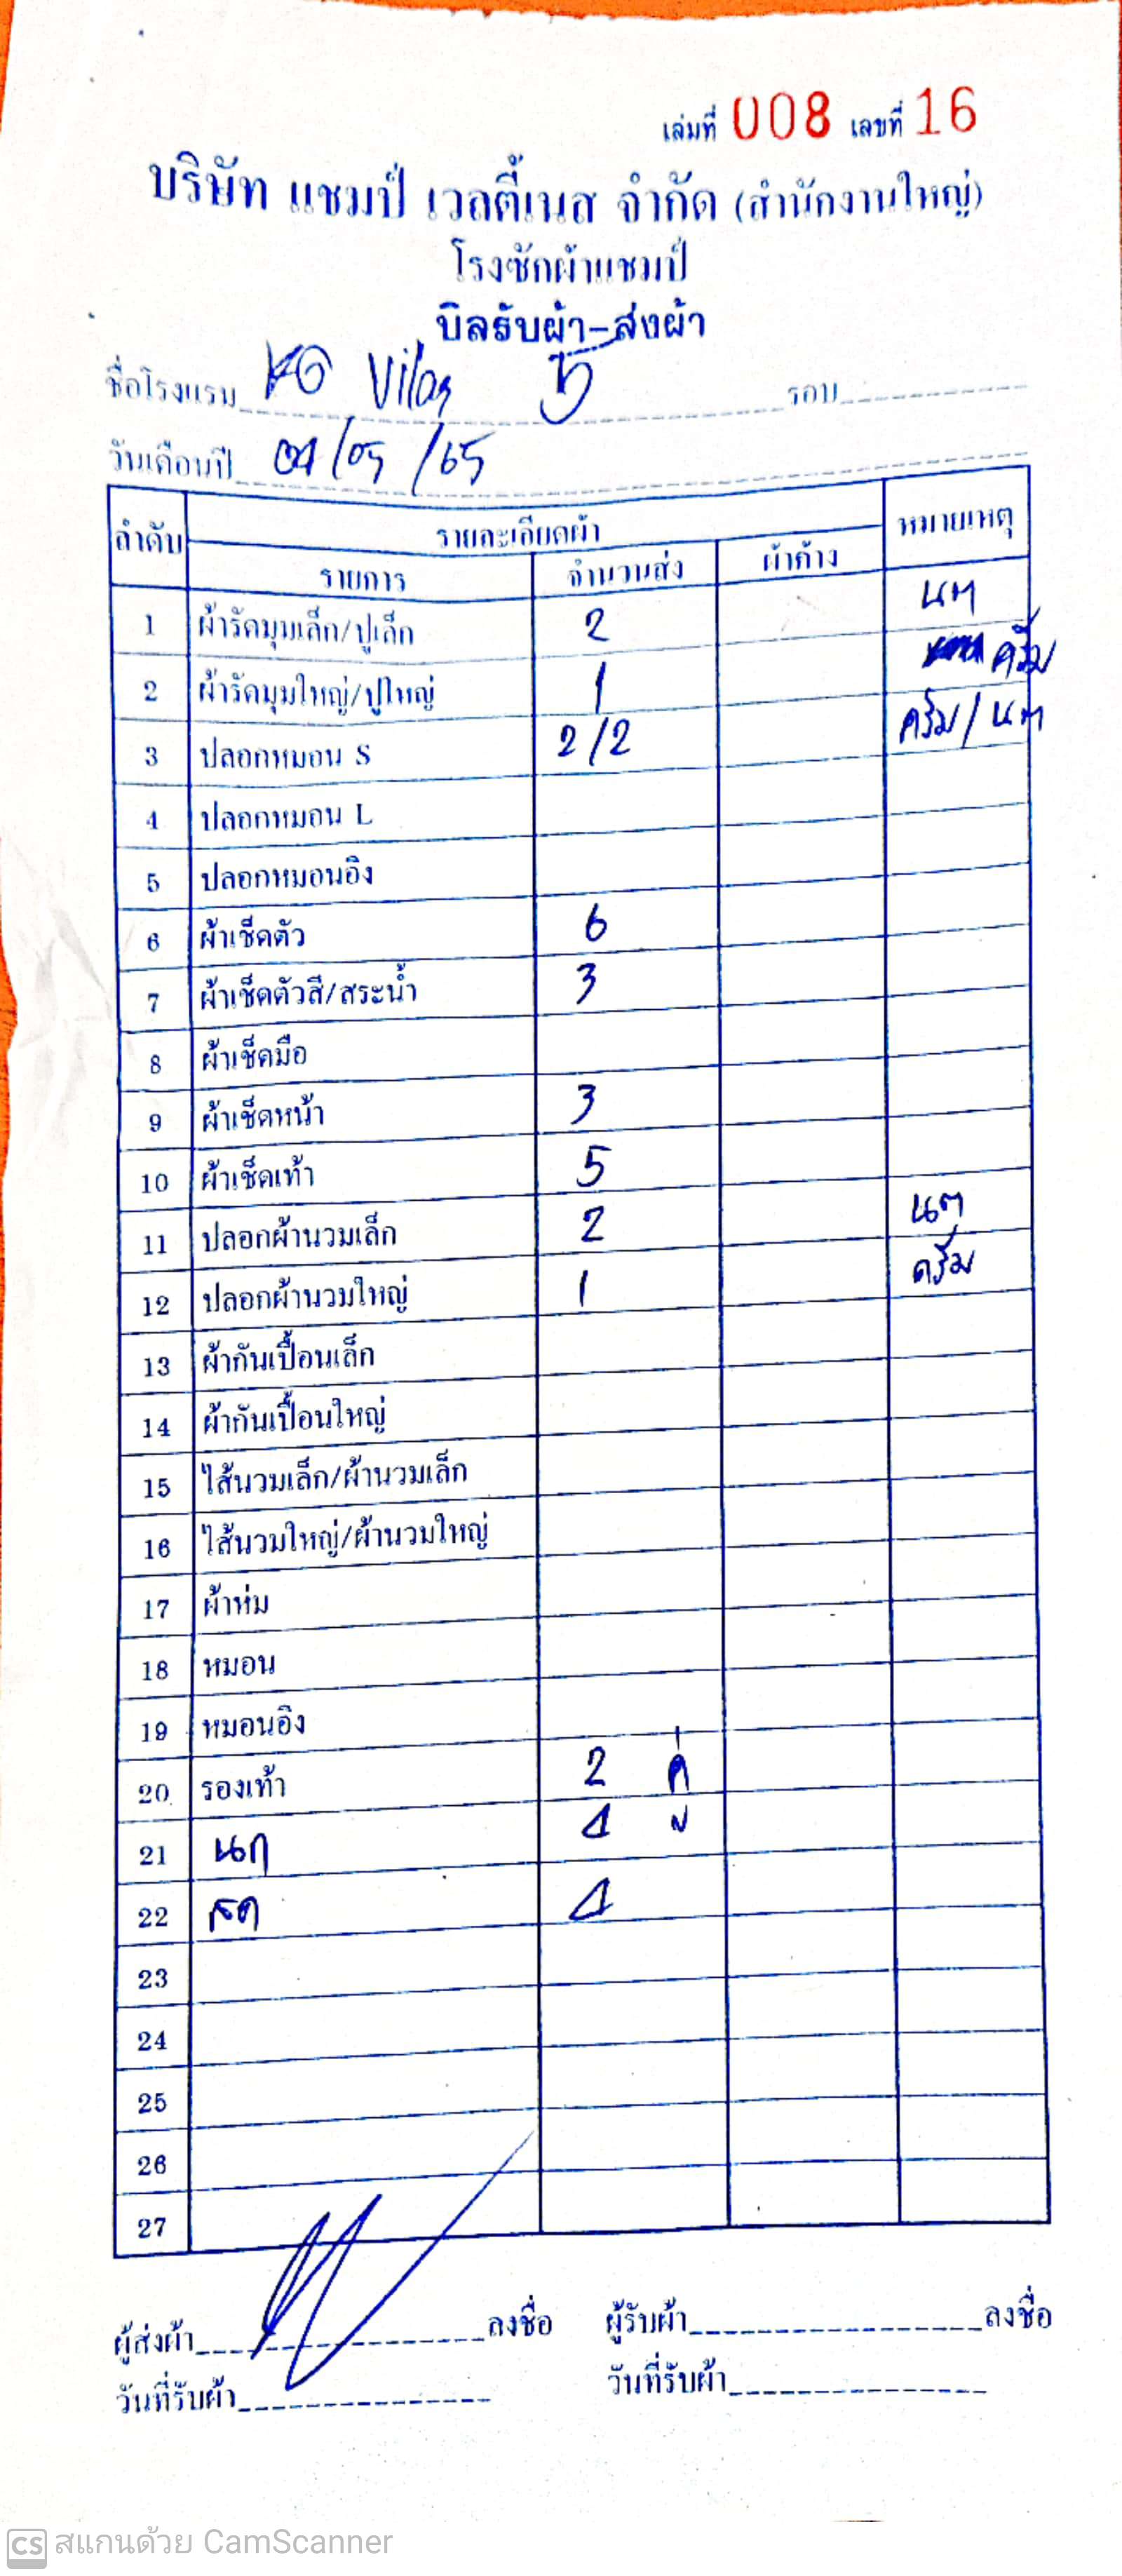 เล่มที่ 008 เลขที่ 16
บริษัท แชมป์ เวลตี้เนส จำกัด (สำนักงานใหญ่)
โรงซักผ้าแชมป์
บิลรับผ้า-ส่งผ้า
ชื่อโรงแรม 5 รอบ
วันเดือนปี /05 /65
ลำดับ รายละเอียดผ้า หมายเหตุ
รายการ จำนวนส่ง ผ้าค้าง
1 ผ้ารัดมุมเล็ก/ปูเล็ก 2 นต
2 ผ้ารัดมุมใหญ่/ปูใหญ่ 1 ครีม
3 ปลอกหมอน S 2/2 ครีม/นต
4 ปลอกหมอน L
5 ปลอกหมอนอิง
6 ผ้าเช็ดตัว 6
7 ผ้าเช็ดตัวสี/สระน้ำ 3
8 ผ้าเช็ดมือ
9 ผ้าเช็ดหน้า 3
10 ผ้าเช็ดเท้า 5
11 ปลอกผ้านวมเล็ก 2 นต
12 ปลอกผ้านวมใหญ่ 1 ครีม
13 ผ้ากันเปื้อนเล็ก
14 ผ้ากันเปื้อนใหญ่
15 ไส้นวมเล็ก/ผ้านวมเล็ก
16 ไส้นวมใหญ่/ผ้านวมใหญ่
17 ผ้าห่ม
18 หมอน
19 หมอนอิง
20 รองเท้า 2 คู่
21 4
22 4
23
24
25
26
27
ผู้ส่งผ้า ลงชื่อ ผู้รับผ้า ลงชื่อ
วันที่รับผ้า วันที่รับผ้า
CS สแกนด้วย CamScanner